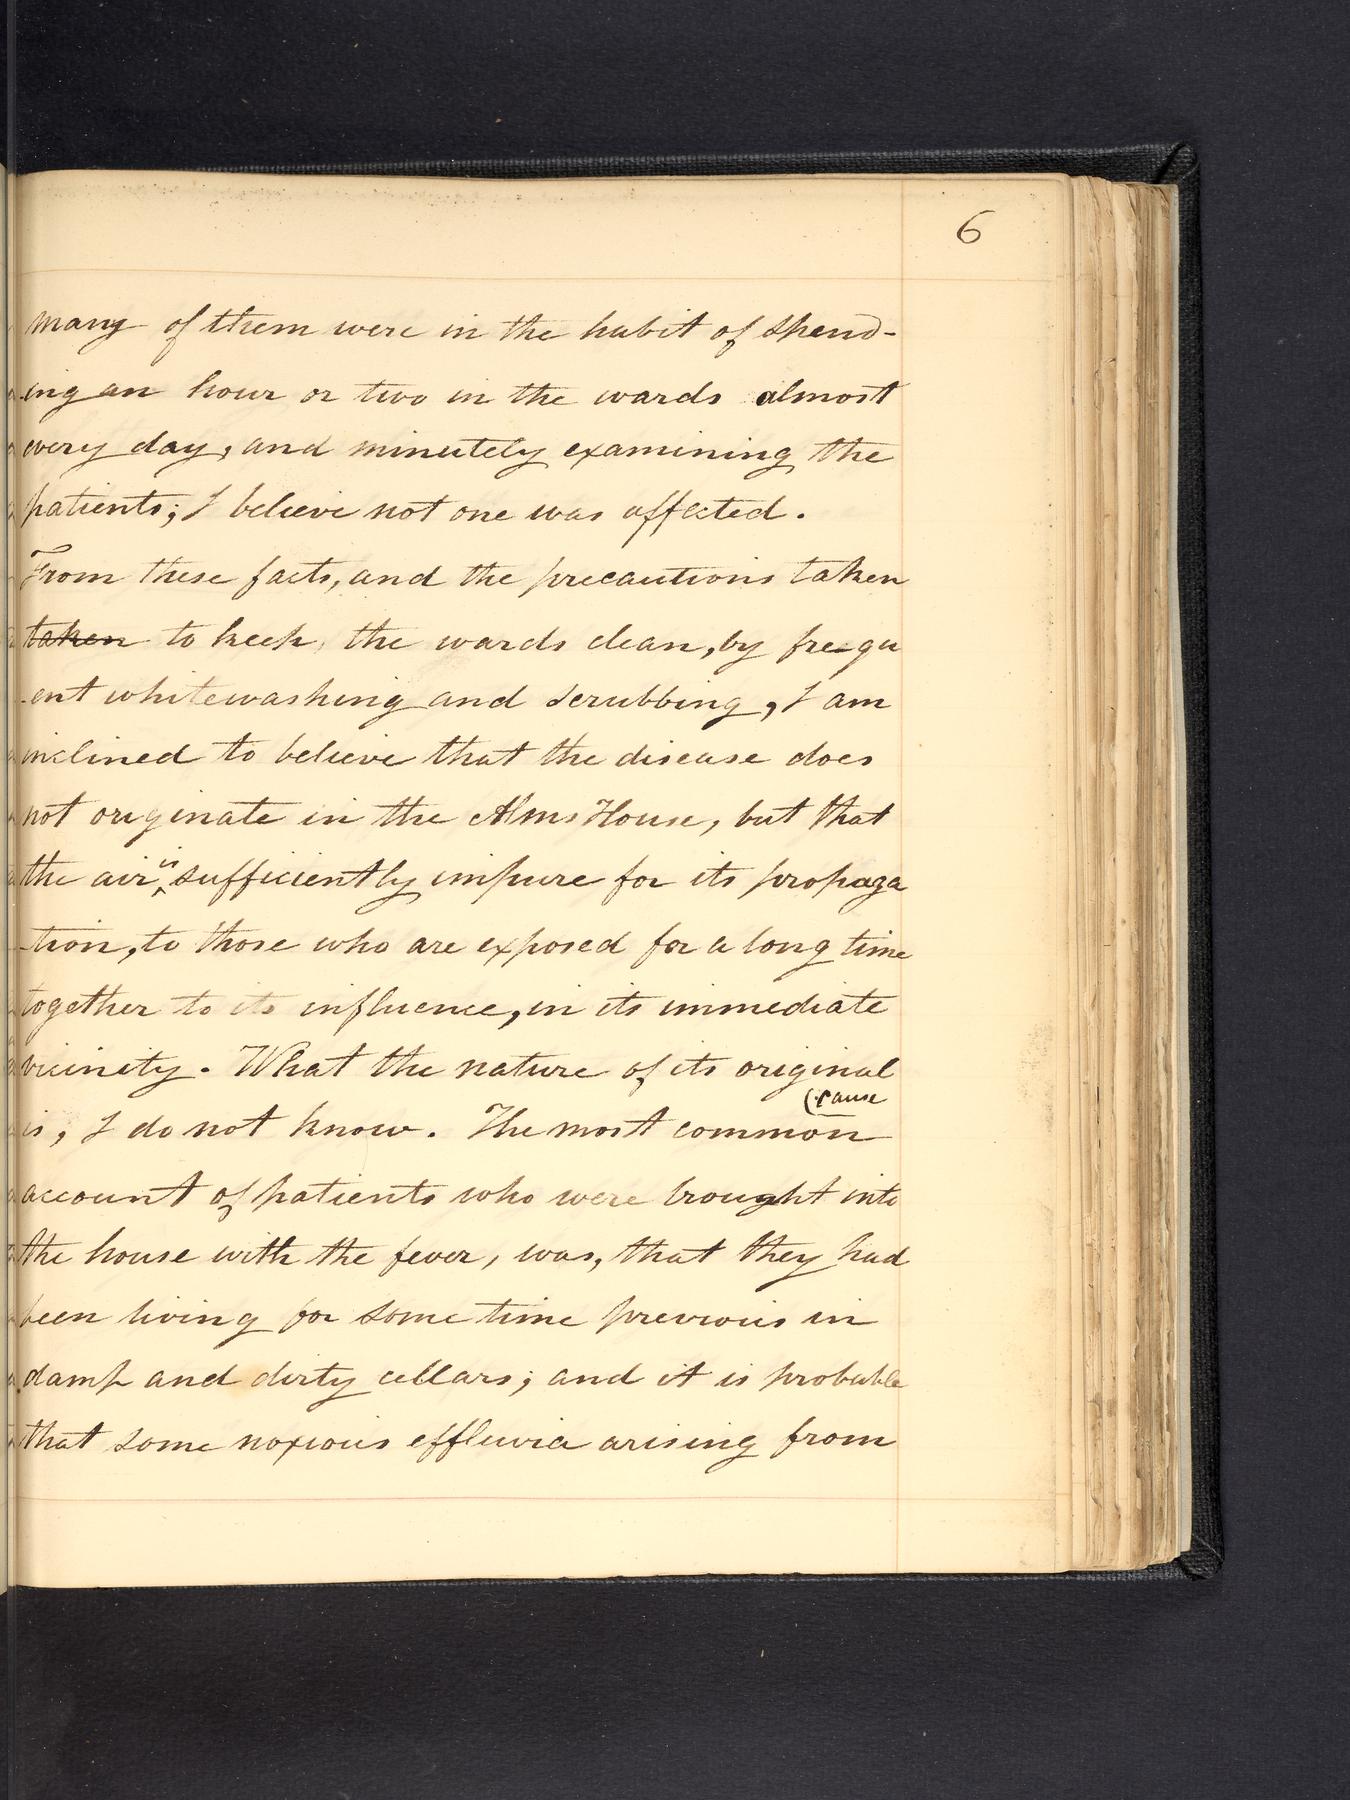 6
many of them were in the habit of spend-
-ing an hour or two in the wards almost
every day, and minutely examining the
patients; I believe not one was affected.
From these facts, and the precautions taken
taken to keep the wards clean, by frequ
-ent whitewashing and scrubbing, I am
inclined to believe that the disease does
not originate in the Alms House, but that
the air is sufficiently impure for its propaga
-tion, to those who are exposed for a long time
together to its influence, in its immediate
vicinity. What the nature of its original
(cause
is, I do not know. The most common
account of patients who were brought into
the house with the fever, was, that they had
been living for some time previous in
damp and dirty cellars; and it is probable
that some noxious effluvia arising from